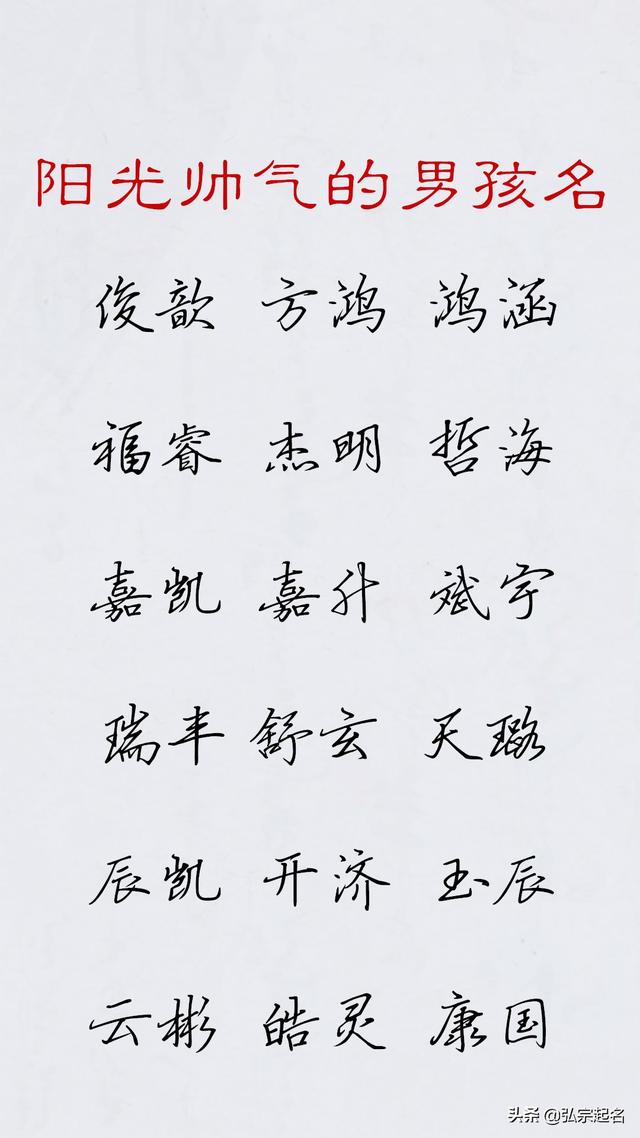 阳光帅气的男孩名
俊歆 方鸿 鸿涵
福睿 杰明 哲海
嘉凯 嘉升 斌宇
瑞丰 舒玄 天璐
辰凯 开济 玉辰
云彬 皓灵 康国
头条 @弘宗起名